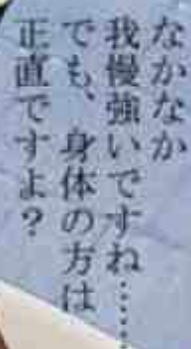 なかなか
我慢強いですね……
でも、身体の方は
正直ですよ？